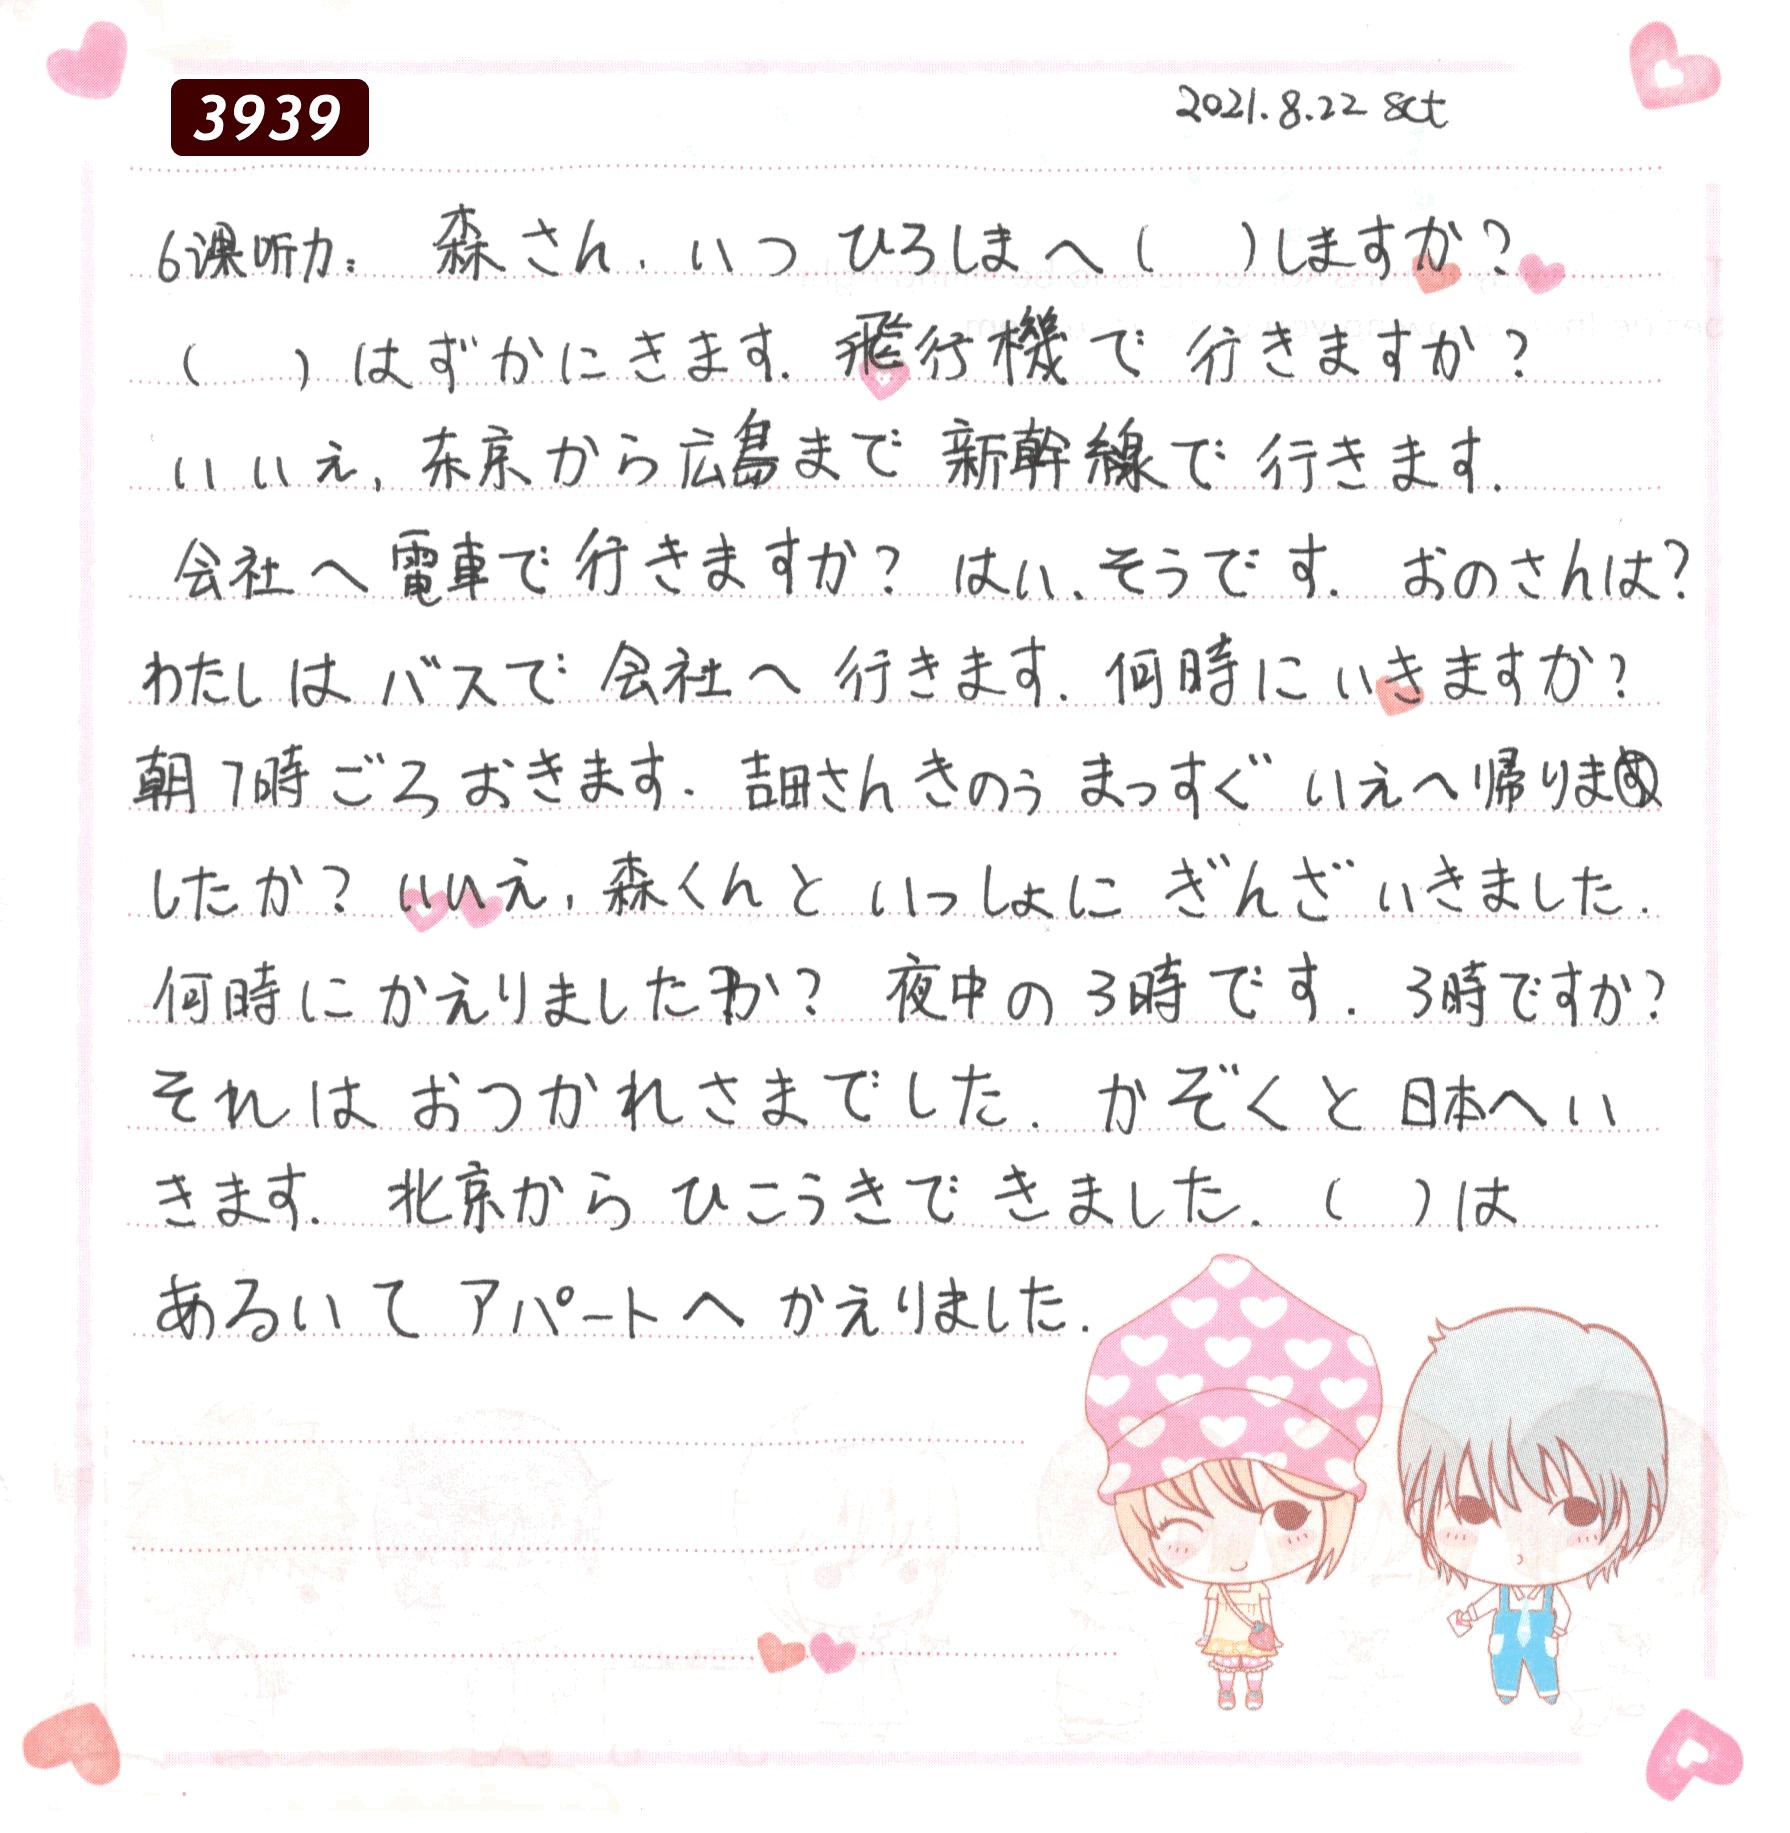 3939
2021.8.22 sct
6课听力: 森さん、いつ ひろしまへ ( )しますか?
( )はずかにきます. 飛行機で 行きますか?
いいえ, 东京から広島まで 新幹線で 行きます.
会社へ 電車で 行きますか? はい、そうです. おのさんは?
わたしは バスで 会社へ 行きます. 何時に いきますか?
朝 7時 ごろ おきます. 吉田さん きのう まっすぐ いえへ帰りま
したか? いいえ, 森くんと いっしょに ぎんざ いきました.
何時に かえりましたか? 夜中の 3時です. 3時ですか?
それは おつかれさまでした. かぞくと 日本へい
きます. 北京から ひこうきで きました. ( )は
あるいて アパートへ かえりました.